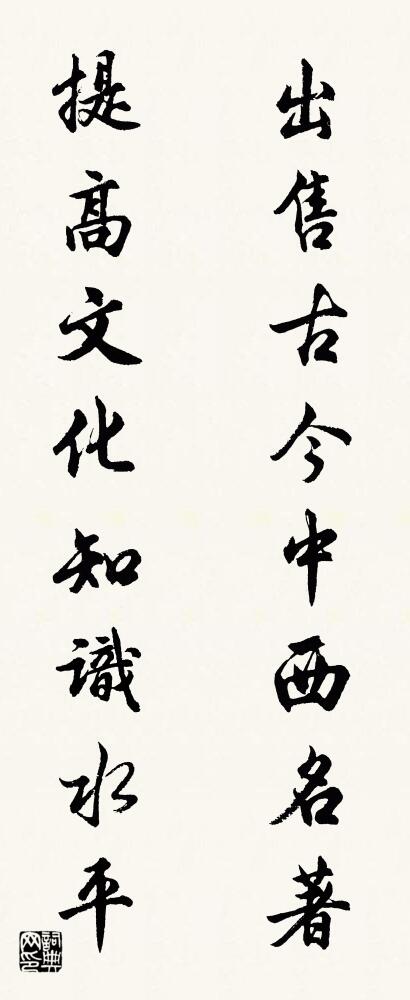 出售古今中西名著
提高文化知識水平
詞典網印